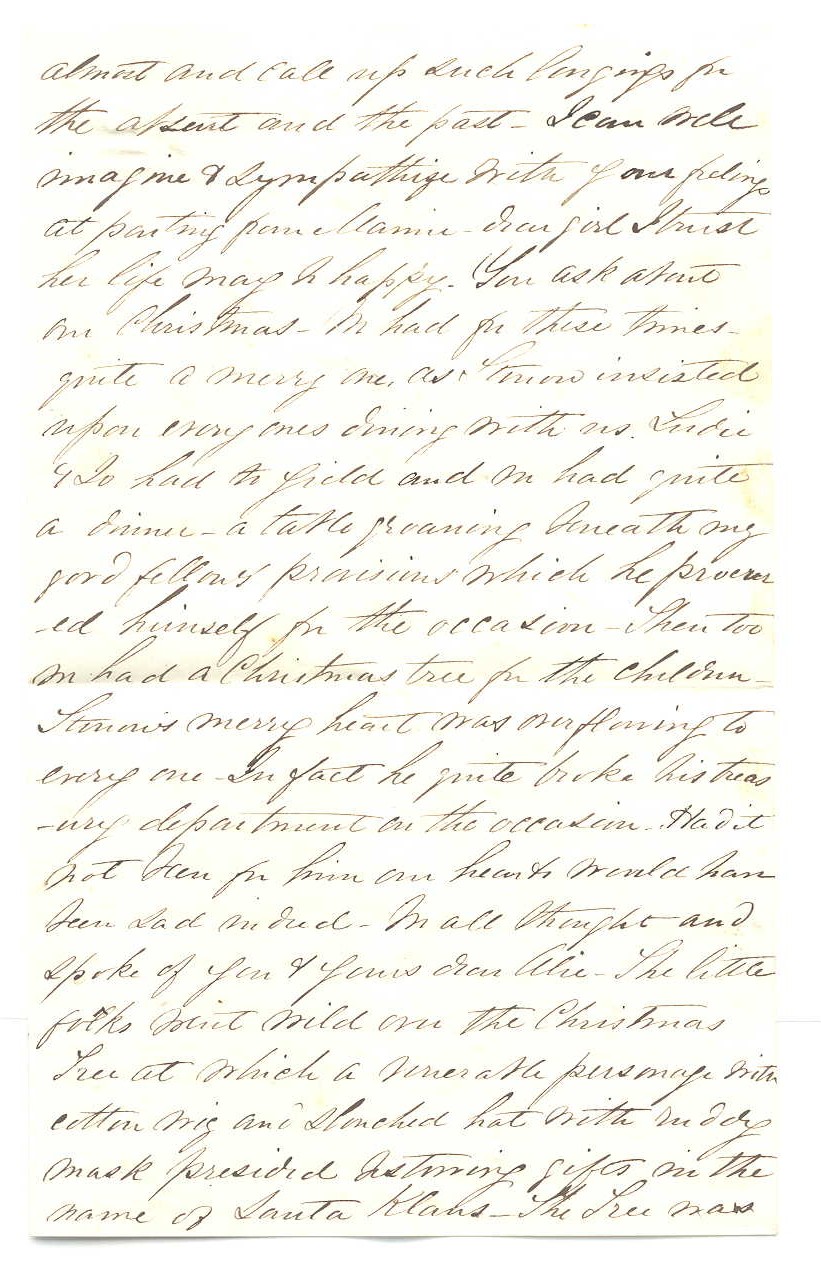 almost and call up such longings for
the absent and the past - I can well
imagine & sympathize with your feelings
at parting from Mamie - dear girl I trust
her life may be happy. You ask about
our Christmas - We had for these times -
quite a merry one, as Simon insisted
upon every ones dining with us. Sudie
& Jo had to yield and we had quite
a dinner - a table groaning beneath my
good fellow's provisions which he procur
-ed himself for the occasion - Then too
we had a Christmas tree for the children -
Simon's merry heart was overflowing to
every one - In fact he quite broke his treas
-ury department on the occasion - Had it
not been for him our hearts would have
been sad indeed - We all thought and
spoke of you & yours dear Alie - The little
folks went wild over the Christmas
Tree at which a venerable personage with
cotton wig and slouched hat with ruddy
mask presided bestowing gifts in the
name of Santa Klaus - The Tree was